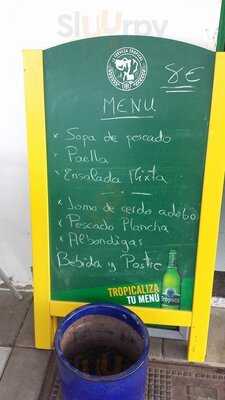 Sluurpy
CERVEZA TROPICAL
8€
MENU
x Sopa de pescado
x Paella
x Ensalada Mixta
x Lomo de cerdo adobo
x Pescado Plancha
x Albondigas
Bebida y Postre
TROPICALIZA
TU MENÚ
Tropical